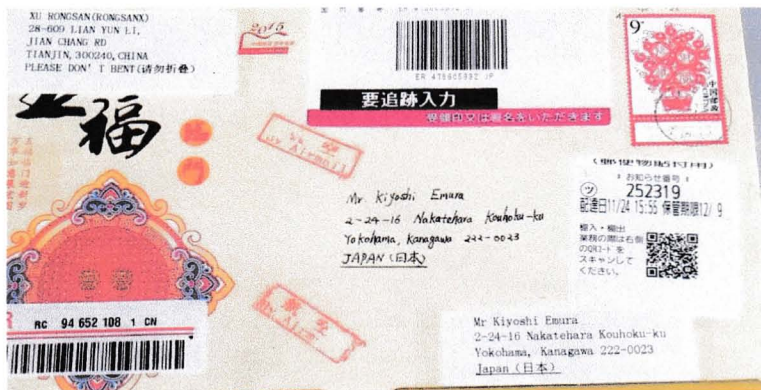 XU RONGSAN(RONGSANX)
28-609 LIAN YUN LI,
JIAN CHANG RD
TIANJIN, 300240, CHINA
PLEASE DON' T BENT(请勿折叠)
2015
ER 478605992 JP
要追跡入力
受領印又は署名をいただきます
9元
中国邮政
CHINA
福
临
門
航空
By Airmail
Mr Kiyoshi Emura
2-24-16 Nakatehara Kouhoku-ku
Yokohama, Kanagawa 222-0023
JAPAN (日本)
(郵便物貼付用)
お知らせ番号
ツ 252319
配達日11/24 15:55 保管期限12/ 9
棚入・棚出
業務の際は右側
のQRコードを
スキャンして
ください。
航空
By Airmail
R RC 94 652 108 1 CN
Mr Kiyoshi Emura
2-24-16 Nakatehara Kouhoku-ku
Yokohama, Kanagawa 222-0023
Japan (日本)